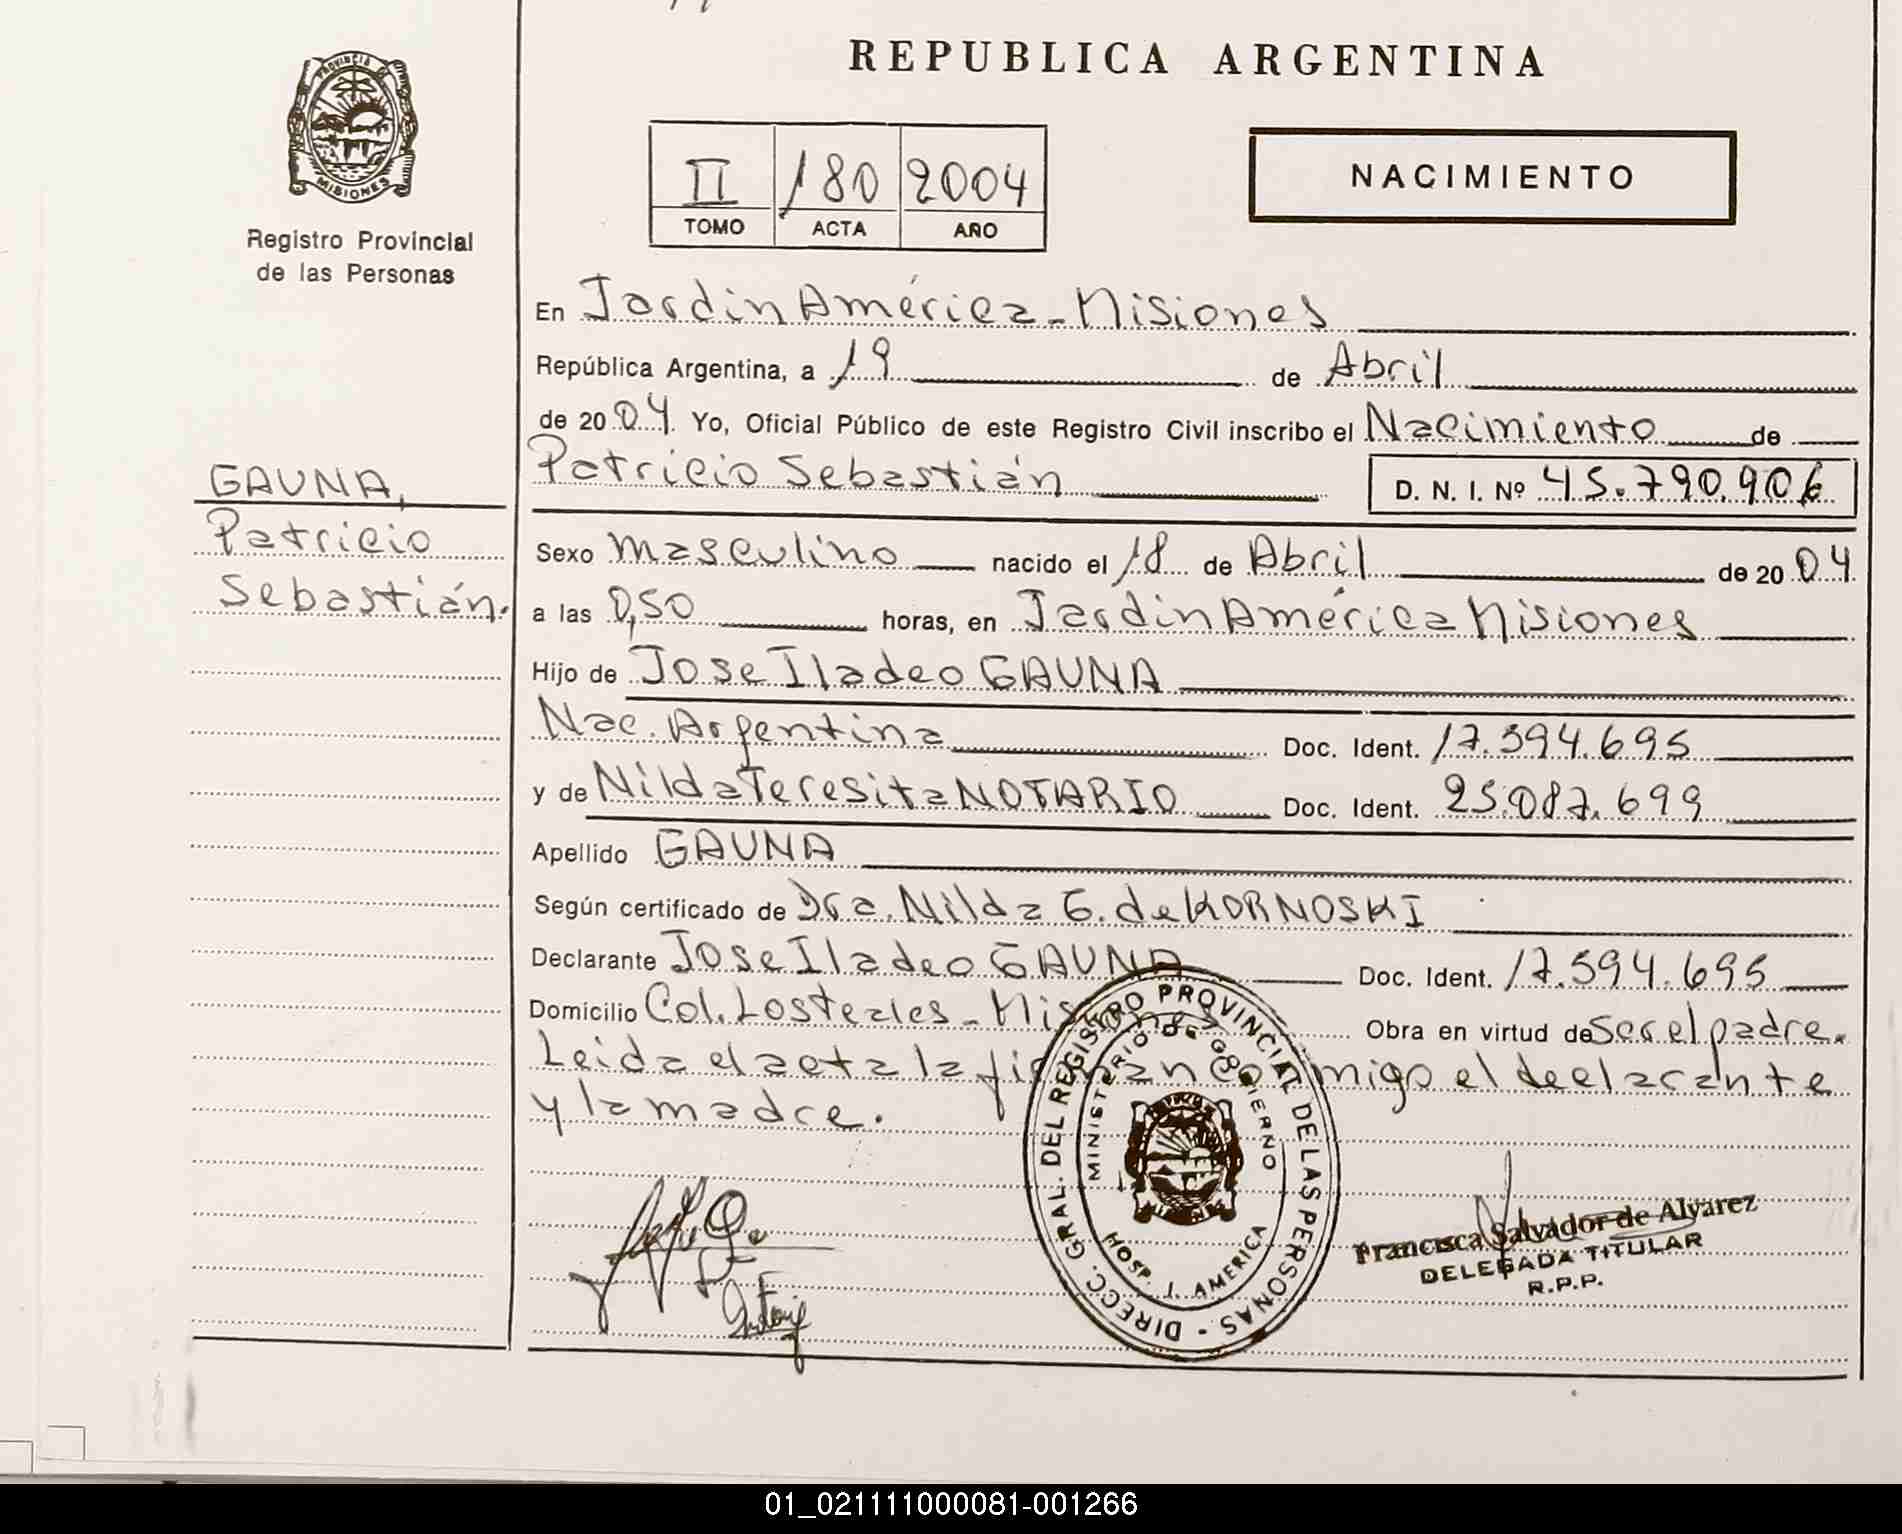 REPUBLICA ARGENTINA
PROVINCIA DE
MISIONES
Registro Provincial
de las Personas
II 180 2004
TOMO ACTA AÑO
NACIMIENTO
En Jardin América - Misiones
República Argentina, a 19 de Abril
de 2004. Yo, Oficial Público de este Registro Civil inscribo el Nacimiento de
Patricio Sebastián D. N. I. Nº 45.790.906
GAUNA,
Patricio
Sebastián.
Sexo masculino nacido el 18 de Abril de 2004
a las 0,50 horas, en Jardin América Misiones
Hijo de Jose Iladeo GAUNA
Nac. Argentina Doc. Ident. 17.594.695
y de Nilda Teresita NOTARIO Doc. Ident. 25.087.699
Apellido GAUNA
Según certificado de Dra. Nilda G. de KORNOSKI
Declarante Jose Iladeo GAUNA Doc. Ident. 17.594.695
Domicilio Col. Los Teales - Misiones Obra en virtud de ser el padre.
Leida el acta la firman conmigo el declarante
y la madre.
DIRECC. GRAL. DEL REGISTRO PROVINCIAL DE LAS PERSONAS -
MINISTERIO DE GOBIERNO
HOSP. J. AMERICA
Francisca Salvador de Alvarez
DELEGADA TITULAR
R.P.P.
01_021111000081-001266